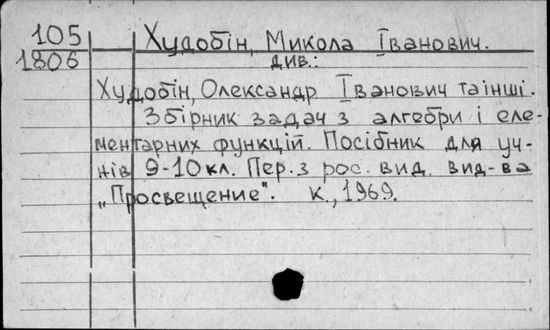 105
1806
Худобін, Микола Іванович.
див.:
Худобін, Олександр Іванович та інші.
Збірник задач з алгебри і еле-
ментарних функцій. Посібник для уч-
нів 9-10 кл. Пер. з рос. вид. вид-ва
„Просвещение". К., 1969.